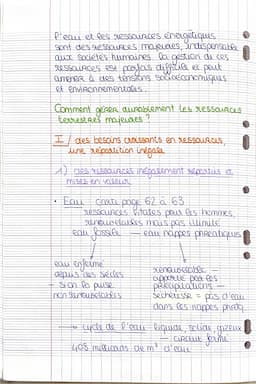 L'eau et les ressources énergétiques
sont des ressources majeures, indispensable
aux sociétés humaines. La gestion de ces
ressources est parfois difficile et peut
amener à des tensions socioéconomiques
et environnementales.
Comment gérer durablement les ressources
terrestres majeures ?
I / des besoins croissants en ressources,
une répartition inégale
1) des ressources inégalement réparties et
mises en valeur
• Eau : carte page 62 à 63
ressources vitales pour les hommes,
renouvelables mais pas illimité
eau fossile — eau nappes phréatiques
eau enfermé
depuis des siècles
- si on la puise
non renouvelables
renouvelable —
apporté par les
précipitations —
sécheresse = pas d'eau
dans les nappes phréa
→ cycle de l'eau : liquide, solide, gazeux
— circuit fermé
408 milliards de m³ d'eau